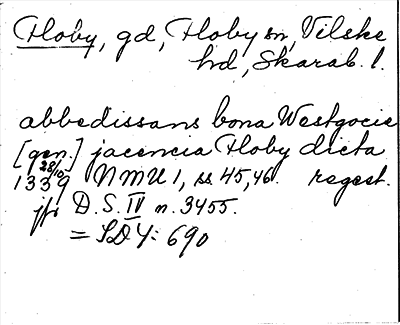 Floby, gd, Floby sn, Vilske
hd, Skarab. l.
abbedissans bona Westgocie
[gen.] jacencia Floby dicta
28/10
1339 NMU 1, ss. 45, 46. regest.
jfr D. S. IV n. 3455.
= SD 4: 690